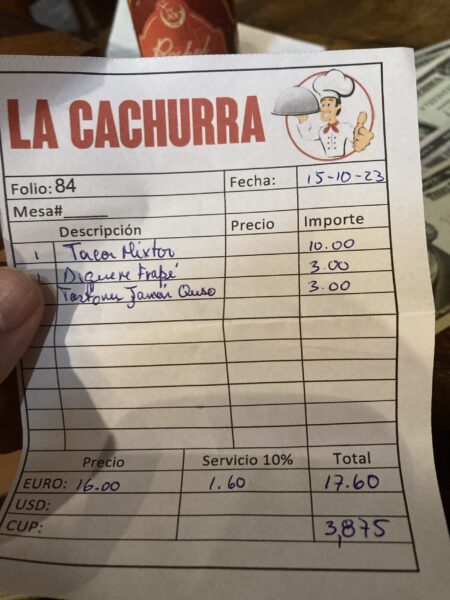 LA CACHURRA
Folio: 84 Fecha: 15-10-23
Mesa#
Descripción Precio Importe
1 Tacos Mixtos 10.00
1 Frapé 3.00
Jamón Queso 3.00
Precio Servicio 10% Total
EURO: 16.00 1.60 17.60
USD:
CUP: 3,875